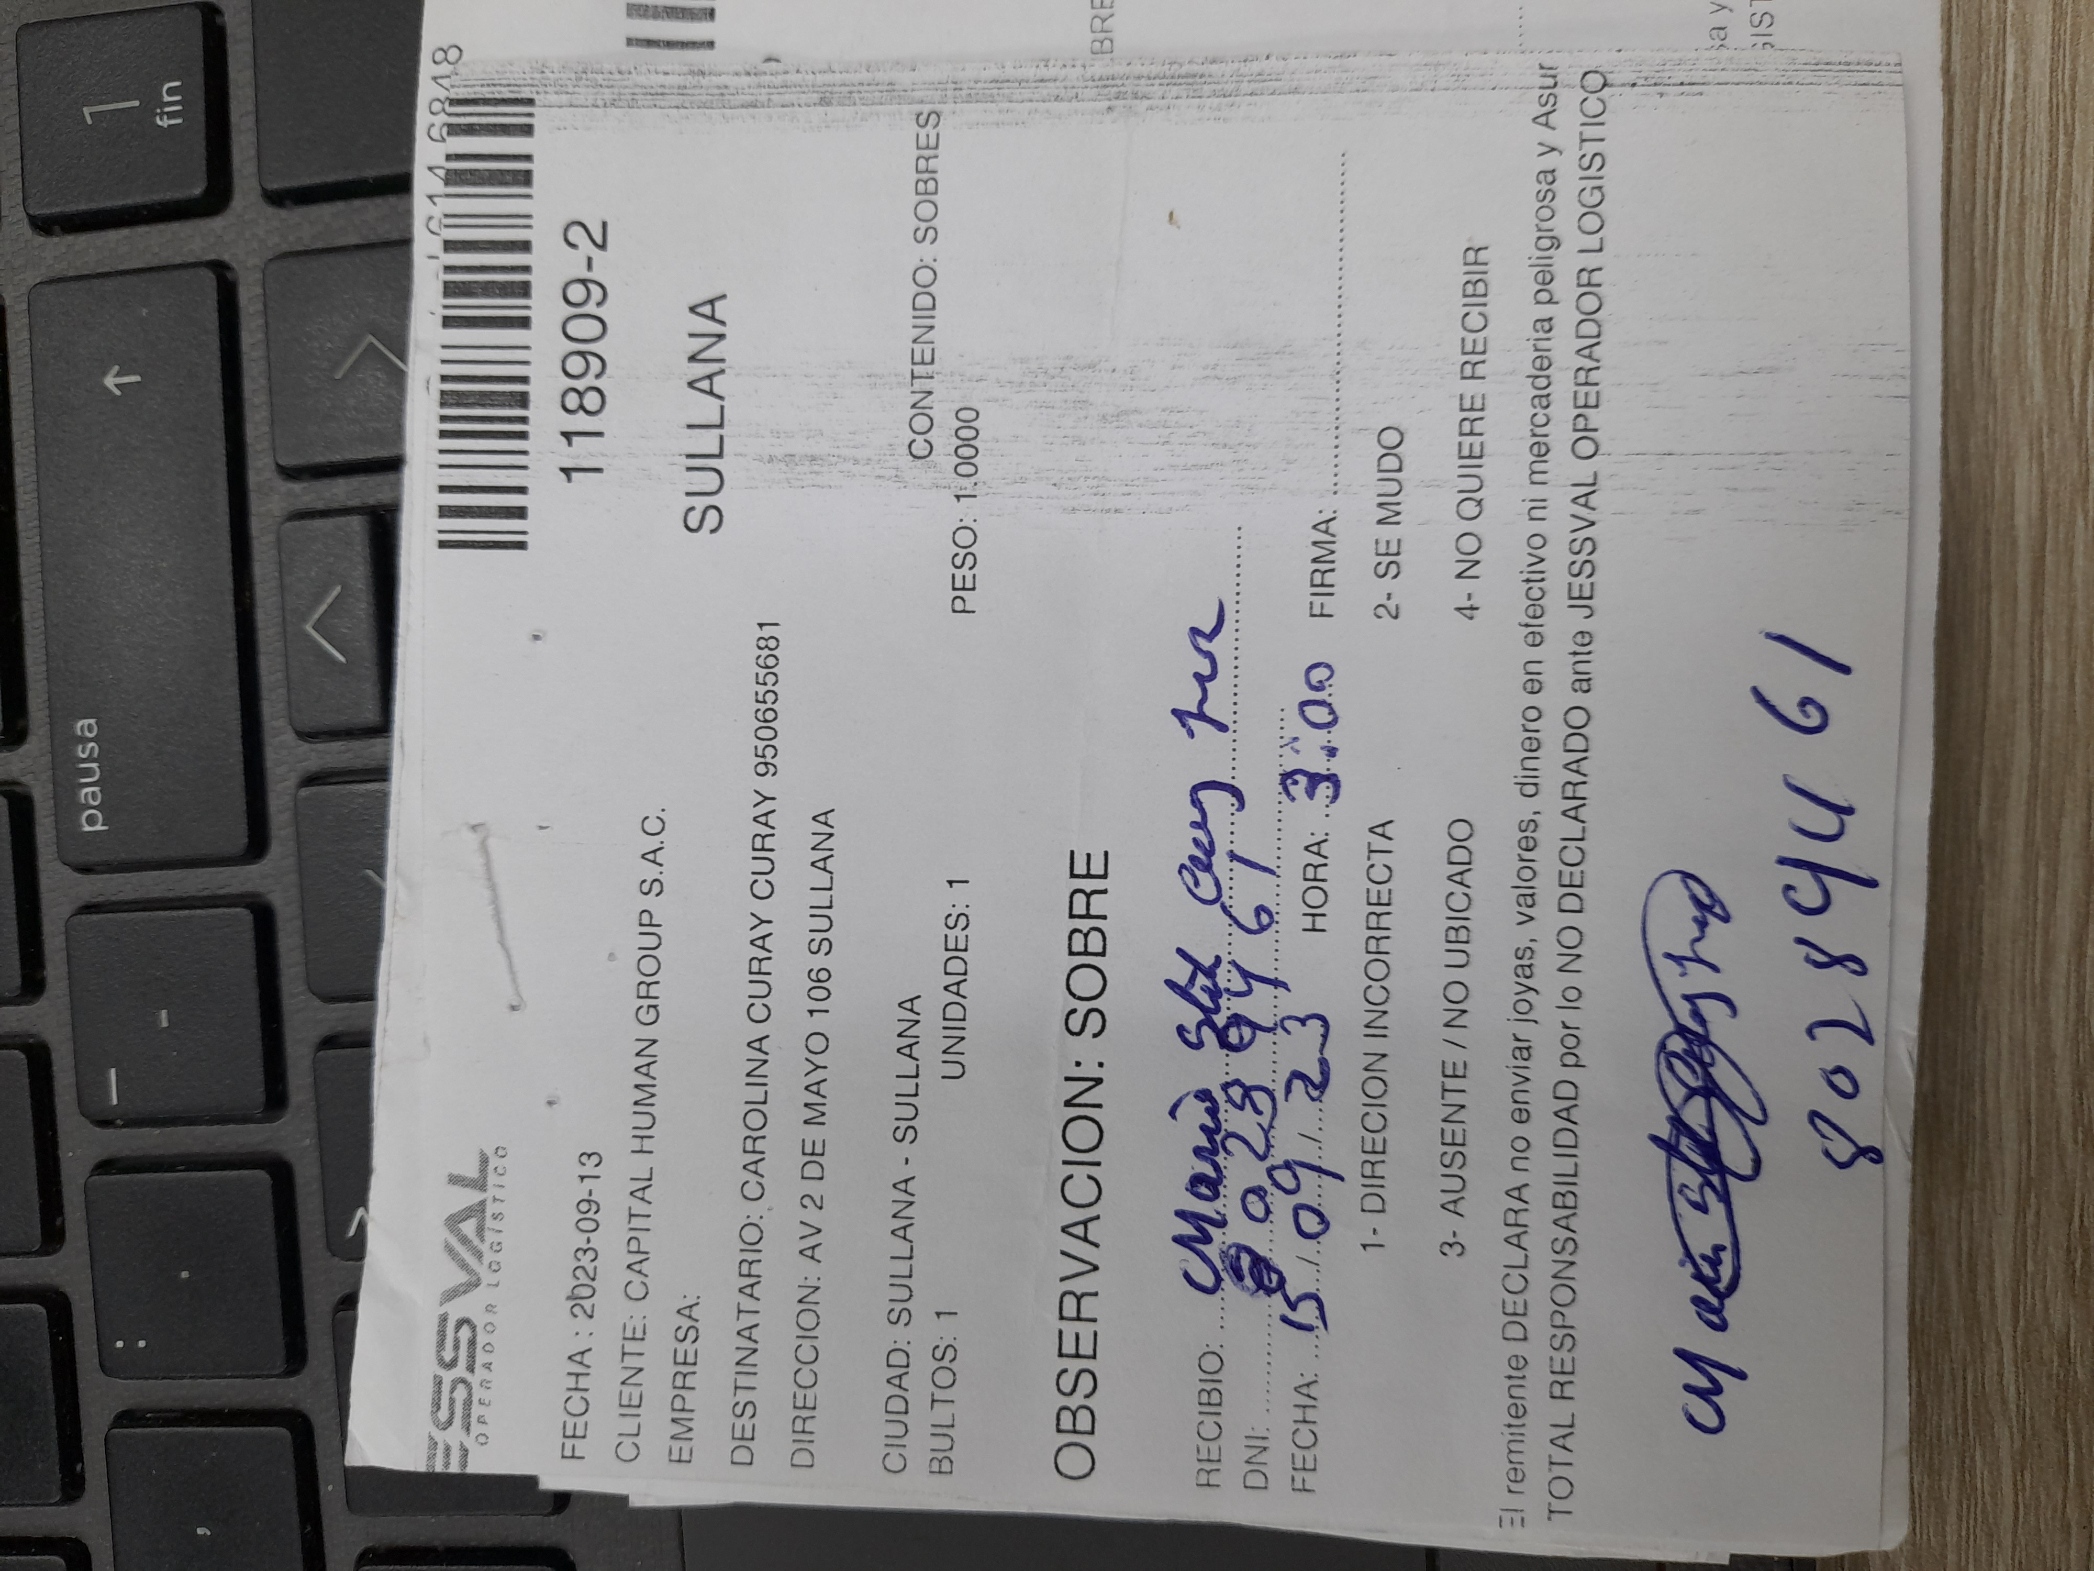 pausa
1
fin
ESSVAL
OPERADOR LOGÍSTICO
614 6848
118909-2
FECHA : 2023-09-13
CLIENTE: CAPITAL HUMAN GROUP S.A.C.
EMPRESA:
SULLANA
DESTINATARIO: CAROLINA CURAY CURAY 950655681
DIRECCION: AV 2 DE MAYO 106 SULLANA
CIUDAD: SULLANA - SULLANA
CONTENIDO: SOBRES
BULTOS: 1 UNIDADES: 1 PESO: 1.0000
OBSERVACION: SOBRE
BRE
RECIBIO: Mario
DNI: 80289461
FECHA: 15/09/23 HORA: 3:00 FIRMA:
1- DIRECION INCORRECTA 2- SE MUDO
3- AUSENTE / NO UBICADO 4- NO QUIERE RECIBIR
El remitente DECLARA no enviar joyas, valores, dinero en efectivo ni mercaderia peligrosa y Asur
TOTAL RESPONSABILIDAD por lo NO DECLARADO ante JESSVAL OPERADOR LOGISTICO
sa y
GIST
80289461